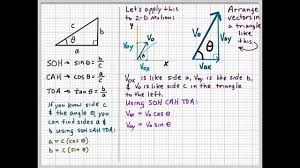 c
b
θ
a
SOH → sinθ = b/c
CAH → cosθ = a/c
TOA → tanθ = b/a
If you know side c
& the angle θ, you
can find sides a
& b using SOH CAH TOA:
a = c (cosθ)
b = c (sinθ)
Let's apply this
to 2-D motion:
y
Vo
Voy
θ
Vox
x
Arrange
vectors in
a triangle
like this:
Vo
Voy
θ
Vox
Vox is like side a, Voy is like side b,
& Vo is like side c in the triangle
to the left.
Using SOH CAH TOA:
Vox = Vo cosθ
Voy = Vo sinθ